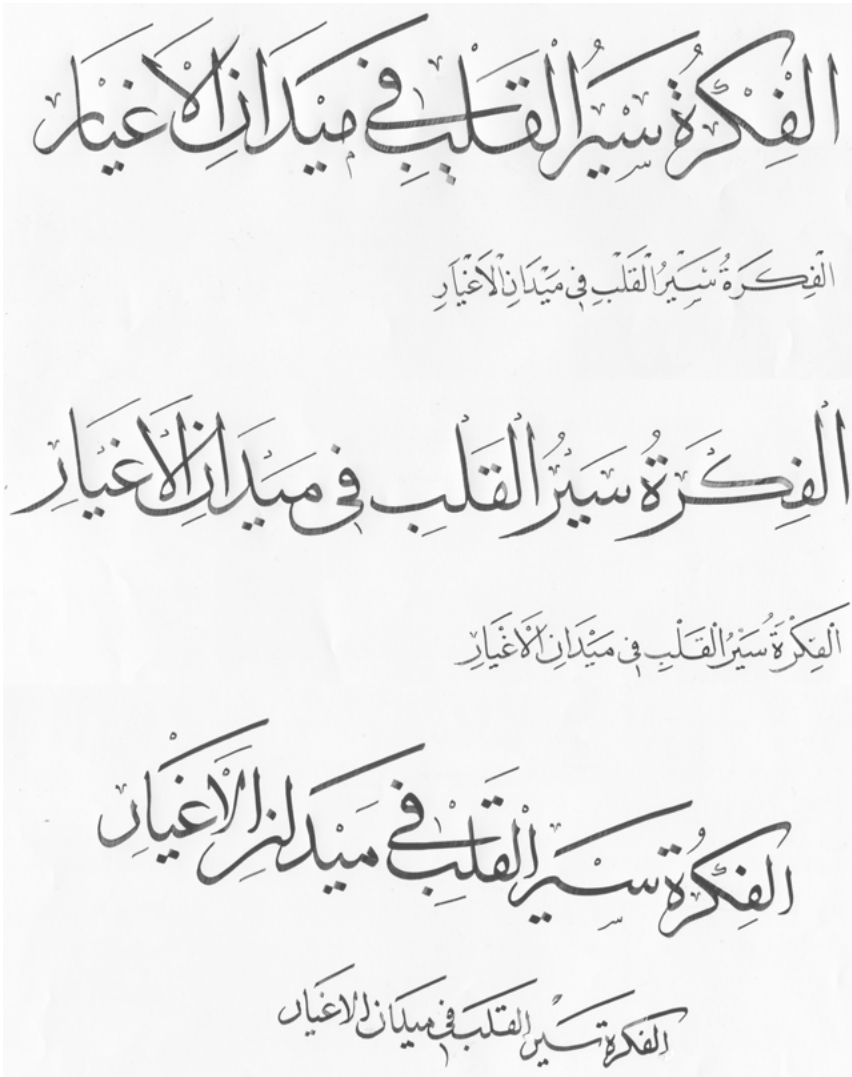 الْفِكْرَةُ سَيْرُ الْقَلْبِ فِي مَيْدَانِ الْأَغْيَارِ
الْفِكْرَةُ سَيْرُ الْقَلْبِ فِي مَيْدَانِ الْأَغْيَارِ
الْفِكْرَةُ سَيْرُ الْقَلْبِ فِي مَيْدَانِ الْأَغْيَارِ
الْفِكْرَةُ سَيْرُ الْقَلْبِ فِي مَيْدَانِ الْأَغْيَارِ
الفكرة سير القلب في ميدان الأغيار
الفكرة سير القلب في ميدان الاغيار